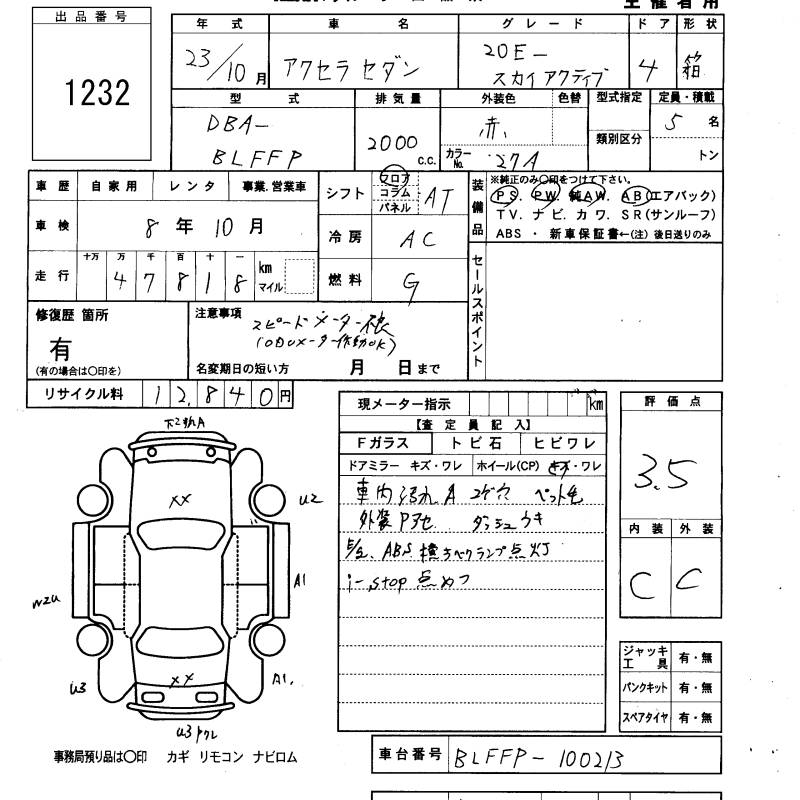 主催者用
出品番号
1232
年式 車名 グレード ドア 形状
23/10月 アクセラセダン 20E- スカイアクティブ 4 箱
型式 排気量 外装色 色替 型式指定 定員・積載
DBA- BLFFP 2000 c.c. 赤 カラーNo. 27A 類別区分 5名 トン
車歴 自家用 レンタ 事業.営業車
車検 8年10月
走行 十万 万 千 百 十 一 km マイル
47818
シフト フロア コラム パネル AT
冷房 AC
燃料 G
装備品
※純正のみ〇印をつけて下さい。
PS. PW. 純AW. AB(エアバック)
TV. ナビ. カワ. SR(サンルーフ)
ABS ・ 新車保証書←(注) 後日送りのみ
セールスポイント
修復歴 箇所
有
(有の場合は〇印を)
注意事項
スピードメーター
(ODOメーター作動OK)
名変期日の短い方 月 日まで
リサイクル料 12,840円
現メーター指示 km
【査定員記入】
Fガラス トビ石 ヒビワレ
ドアミラー キズ・ワレ ホイール(CP) キズ・ワレ
車内汚れA コゲ穴 ペット毛
外装Pアセ ダッシュウキ
ABS 横すべりランプ点灯
i-stop 点めつ
評価点
3.5
内装 外装
C C
ジャッキ工具 有・無
パンクキット 有・無
スペアタイヤ 有・無
下こすれA
XX
U2
A1
W2U
XX
U3
A1.
U3
事務局預り品は〇印 カギ リモコン ナビロム
車台番号 BLFFP-100213